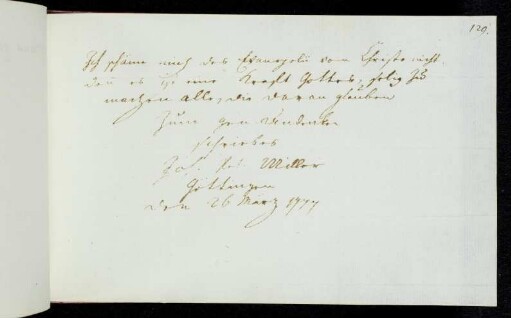 120.
Ich schäme mich des Evangelii von Christo nicht
denn es ist eine Krafft Gottes, selig zu
machen alle, die daran glauben
Zum gen Andenken
schriebs
Joh. Miller
Göttingen
den 26 März 1777